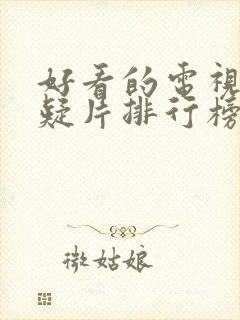 好看的電視
疑片排行榜
微姑娘